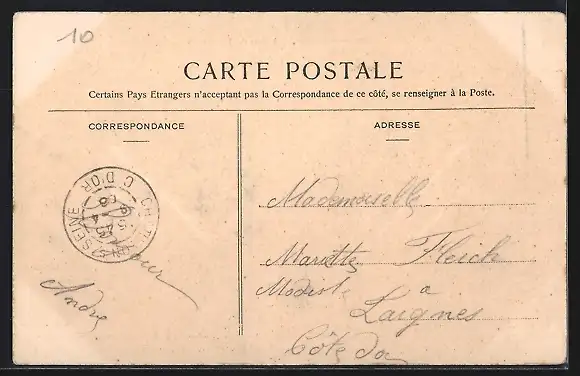 10
CARTE POSTALE
Certains Pays Etrangers n'acceptant pas la Correspondance de ce côté, se renseigner à la Poste.
CORRESPONDANCE
ADRESSE
C. D'OR
SEINE
André
Mademoiselle
Mariette Fleich
Modiste à
Laignes
Côte d'or